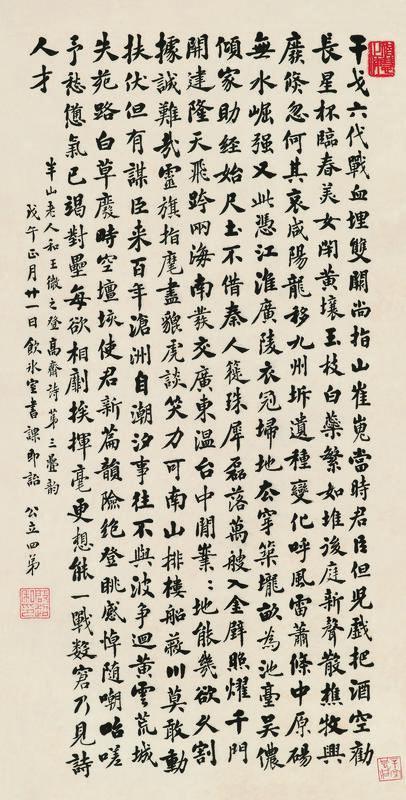 干戈六代戰血埋雙闕尚指山崔嵬當時君臣但兒戲把酒空勸
長星杯臨春美女閉黃壤玉枝白蘂繁如堆後庭新聲散樵牧興
廢倏忽何其哀咸陽龍移九州坼遺種變化呼風雷蕭條中原碭
無水崛强又此憑江淮廣陵衣冠埽地去穿築壠畝為池臺吳儂
傾家助經始尺土不借秦人簁珠犀磊落萬艘入金璧照耀千門
開建隆天飛跨兩海南發交廣東溫台中間業〻地能幾欲久割
據誠難哉靈旗指麾盡貔虎談笑力可南山排樓船蔽川莫敢動
扶伏但有謀臣来百年滄洲自潮汐事往不與波爭迴黃雲荒城
失苑路白草廢時空壇垓使君新篇韻險絶登眺感悼隨嘲咍嗟
予愁憊氣已竭對壘每欲相劘挨揮毫更想能一戰數窘乃見詩
人才
半山老人和王微之登高齋詩第三疊韻
戊午正月廿一日飲冰室書課即詒 公立四弟